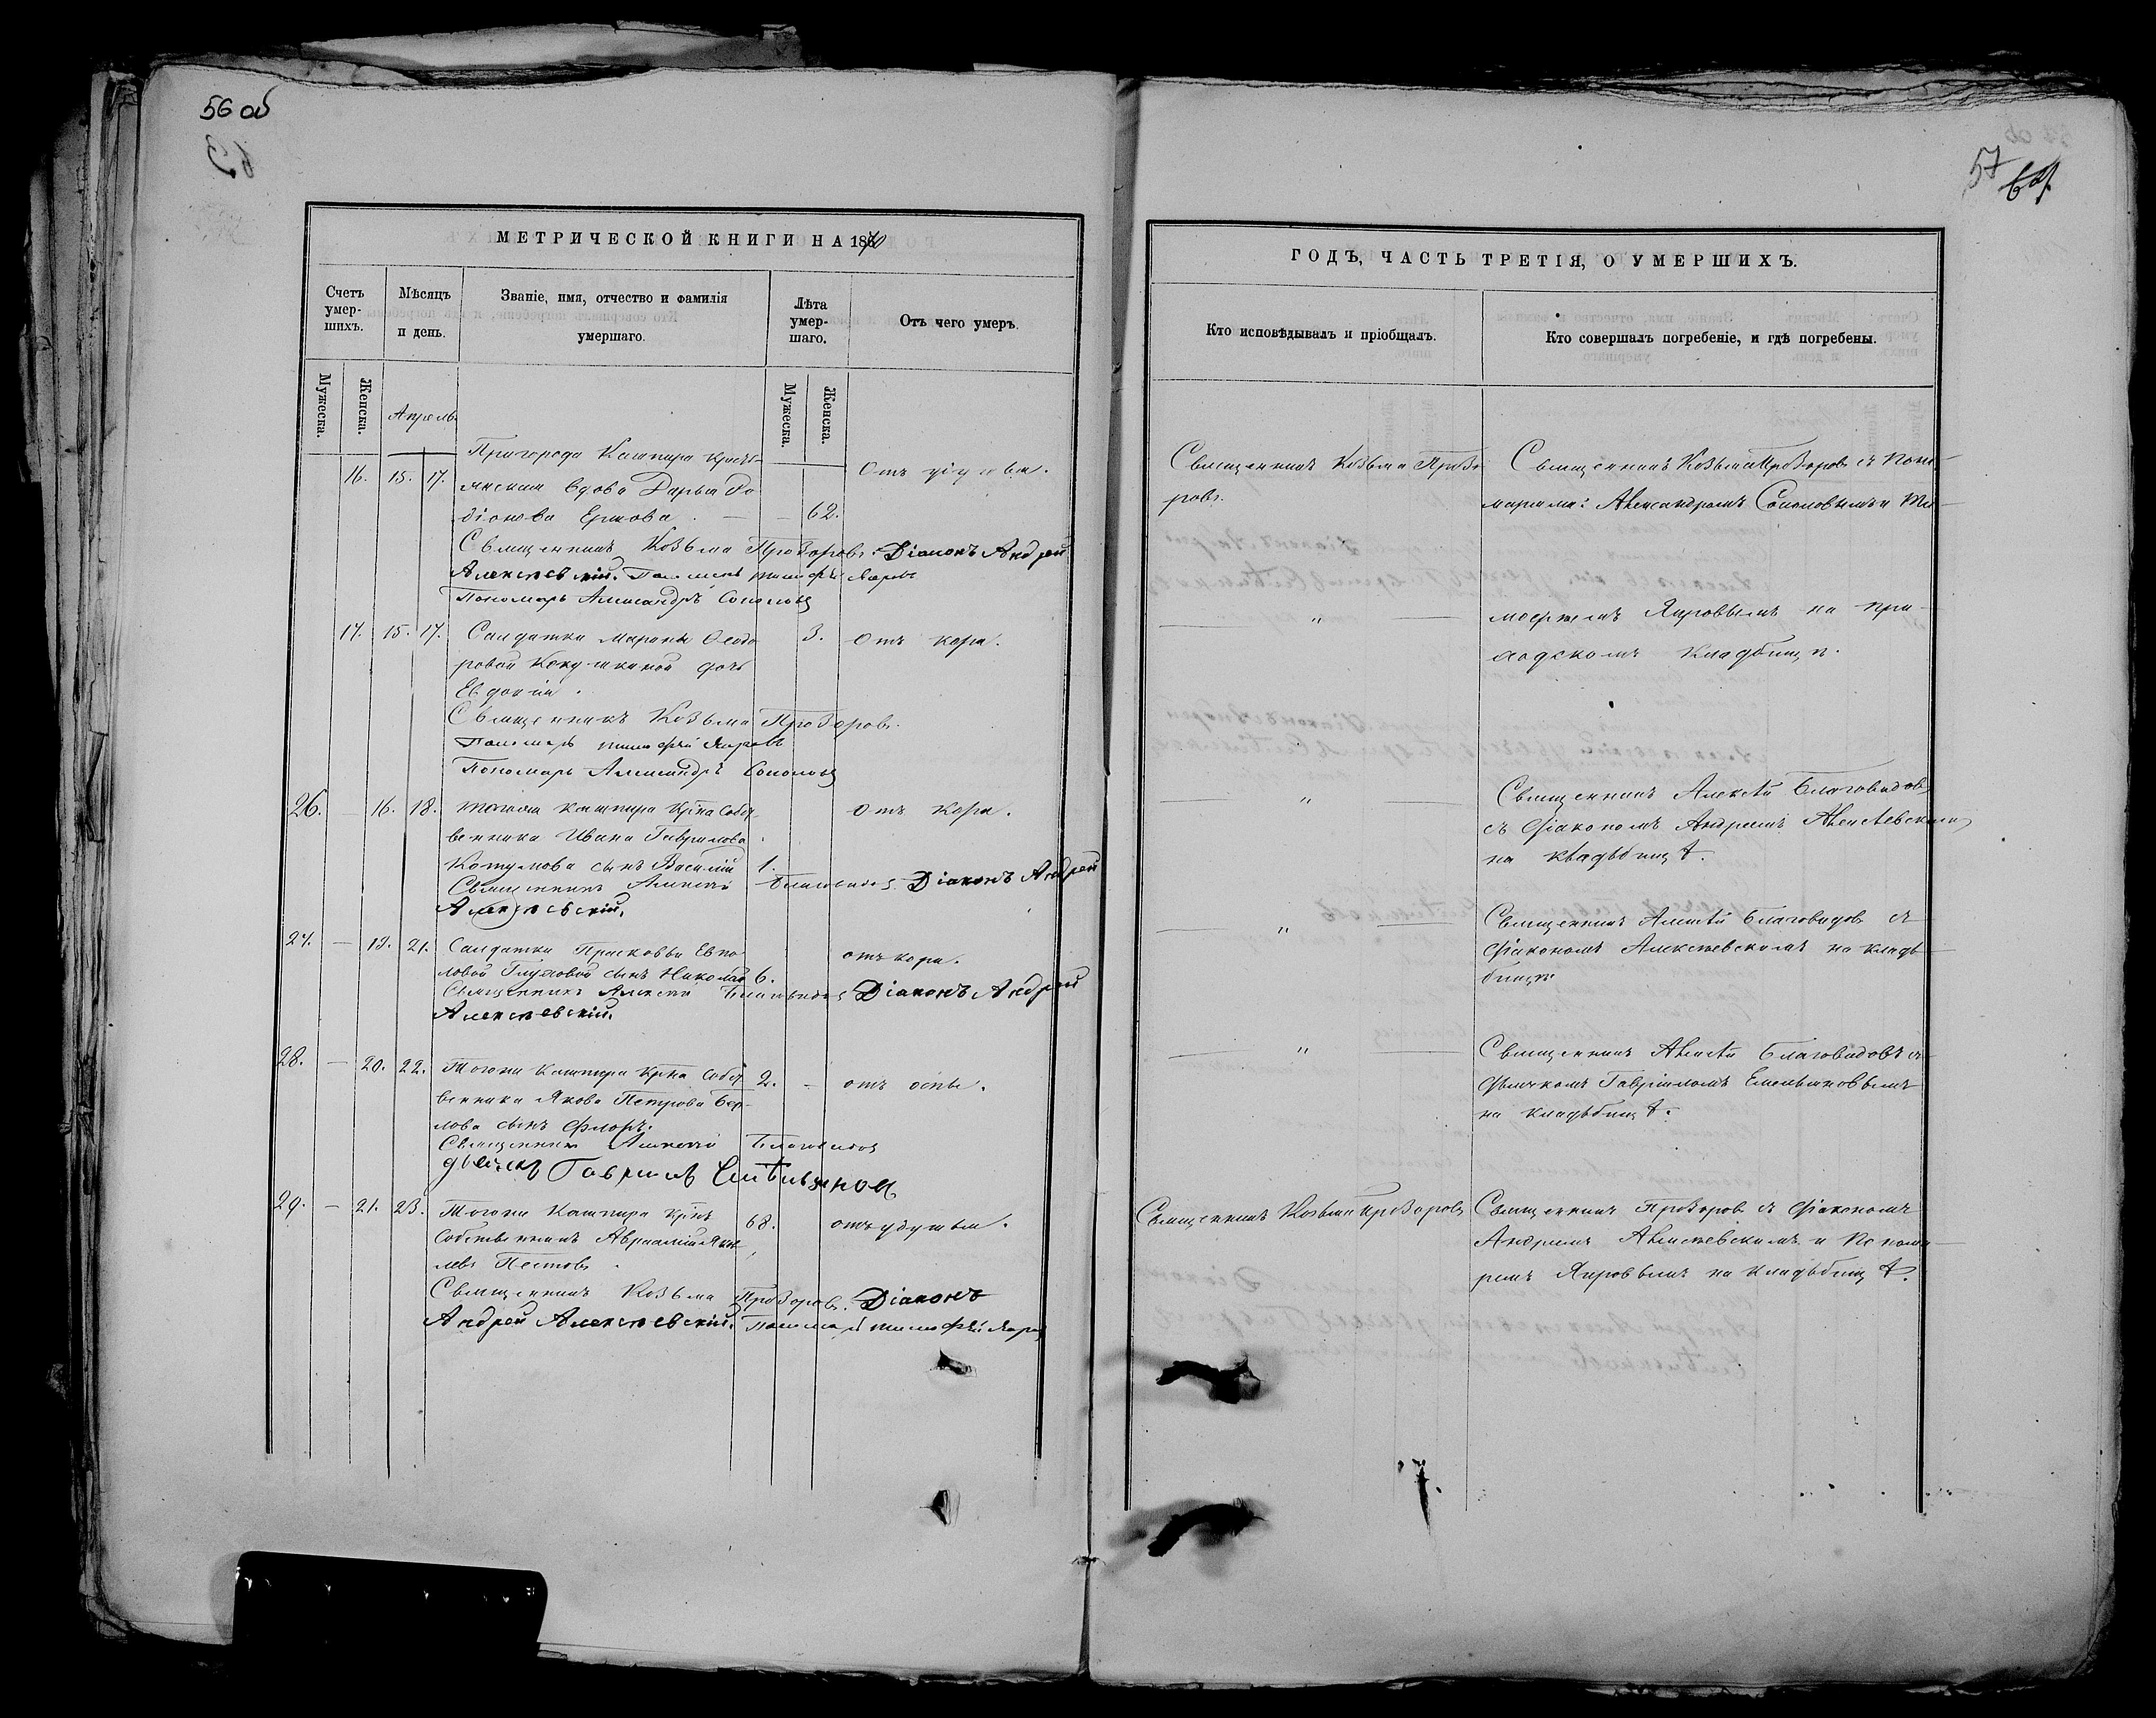 56 об
МЕТРИЧЕСКОЙ КНИГИ НА 1870
Счетъ умер-шихъ.
Мѣсяцъ и день.
Званіе, имя, отчество и фамилія умершаго.
Лѣта умер-шаго.
Отъ чего умеръ.
Мужеска.
Женска.
Мужеска.
Женска.
Апрель.
Пригорода Кашпира кресть-
16. 15. 17. янская вдова Дарья Ро- Отъ удушья.
діонова Ершова. — — 62.
Священникъ Козьма Прозоровъ. Діаконъ Андрей
Алексѣевскій. Пономарь Тимофѣй Яировъ
Пономарь Александръ Соколовъ
17. 15. 17. Салдатки Марѳы Ѳедо- 3. Отъ кори.
ровой Кокушкиной дочь
Евдокія.
Священникъ Козьма Прозоровъ.
Пономарь Тимофѣй Яировъ
Пономарь Александръ Соколовъ
26. — 16. 18. Тогоже Кашпира Кр̃на Собст- Отъ кори.
венника Ивана Гаврилова
сынъ Василій 1.
Священникъ Алексѣй Благовидовъ Діаконъ Андрей
Алексѣевскій.
27. — 19. 21. Салдатки Прасковьи Евпо- отъ кори.
ловой Глуховой сынъ Николай 6.
Священникъ Алексѣй Благовидовъ Діаконъ Андрей
Алексѣевскій.
28. — 20. 22. Тогоже Кашпира Кр̃на Собст- 2. — отъ оспы.
венника Якова Петрова
сынъ Флоръ.
Священникъ Алексѣй Благовидовъ
дьячекъ Гавриилъ
29. — 21. 23. Тогоже Кашпира Кр̃нъ 68. отъ удушья.
Собственникъ Авраамій Яков-
левъ Пестовъ.
Священникъ Козьма Прозоровъ. Діаконъ
Андрей Алексѣевскій. Пономарь Тимофѣй Яировъ
57
64
ГОДЪ, ЧАСТЬ ТРЕТІЯ, О УМЕРШИХЪ.
Кто исповѣдывалъ и пріобщалъ.
Кто совершалъ погребеніе, и гдѣ погребены.
Священникъ Козьма Прозо- Священникъ Козьма Прозоровъ съ Поно-
ровъ. марями: Александромъ Соколовымъ и Ти-
— " — мофеемъ Яировымъ на при-
ходскомъ кладбищѣ.
"
— " — Священникъ Алексѣй Благовидовъ
съ Діакономъ Андреемъ Алексѣевскимъ
на кладьбищѣ.
— " — Священникъ Алексѣй Благовидовъ съ
Діакономъ Алексѣевскимъ на кладь-
бищѣ.
— " — Священникъ Алексѣй Благовидовъ съ
дьячкомъ Гавріиломъ Емельяновымъ
на кладьбищѣ.
Священникъ Козьма Прозоровъ Священникъ Прозоровъ съ Діакономъ
Андреемъ Алексѣевскимъ и Понома-
ремъ Яировымъ на кладьбищѣ.